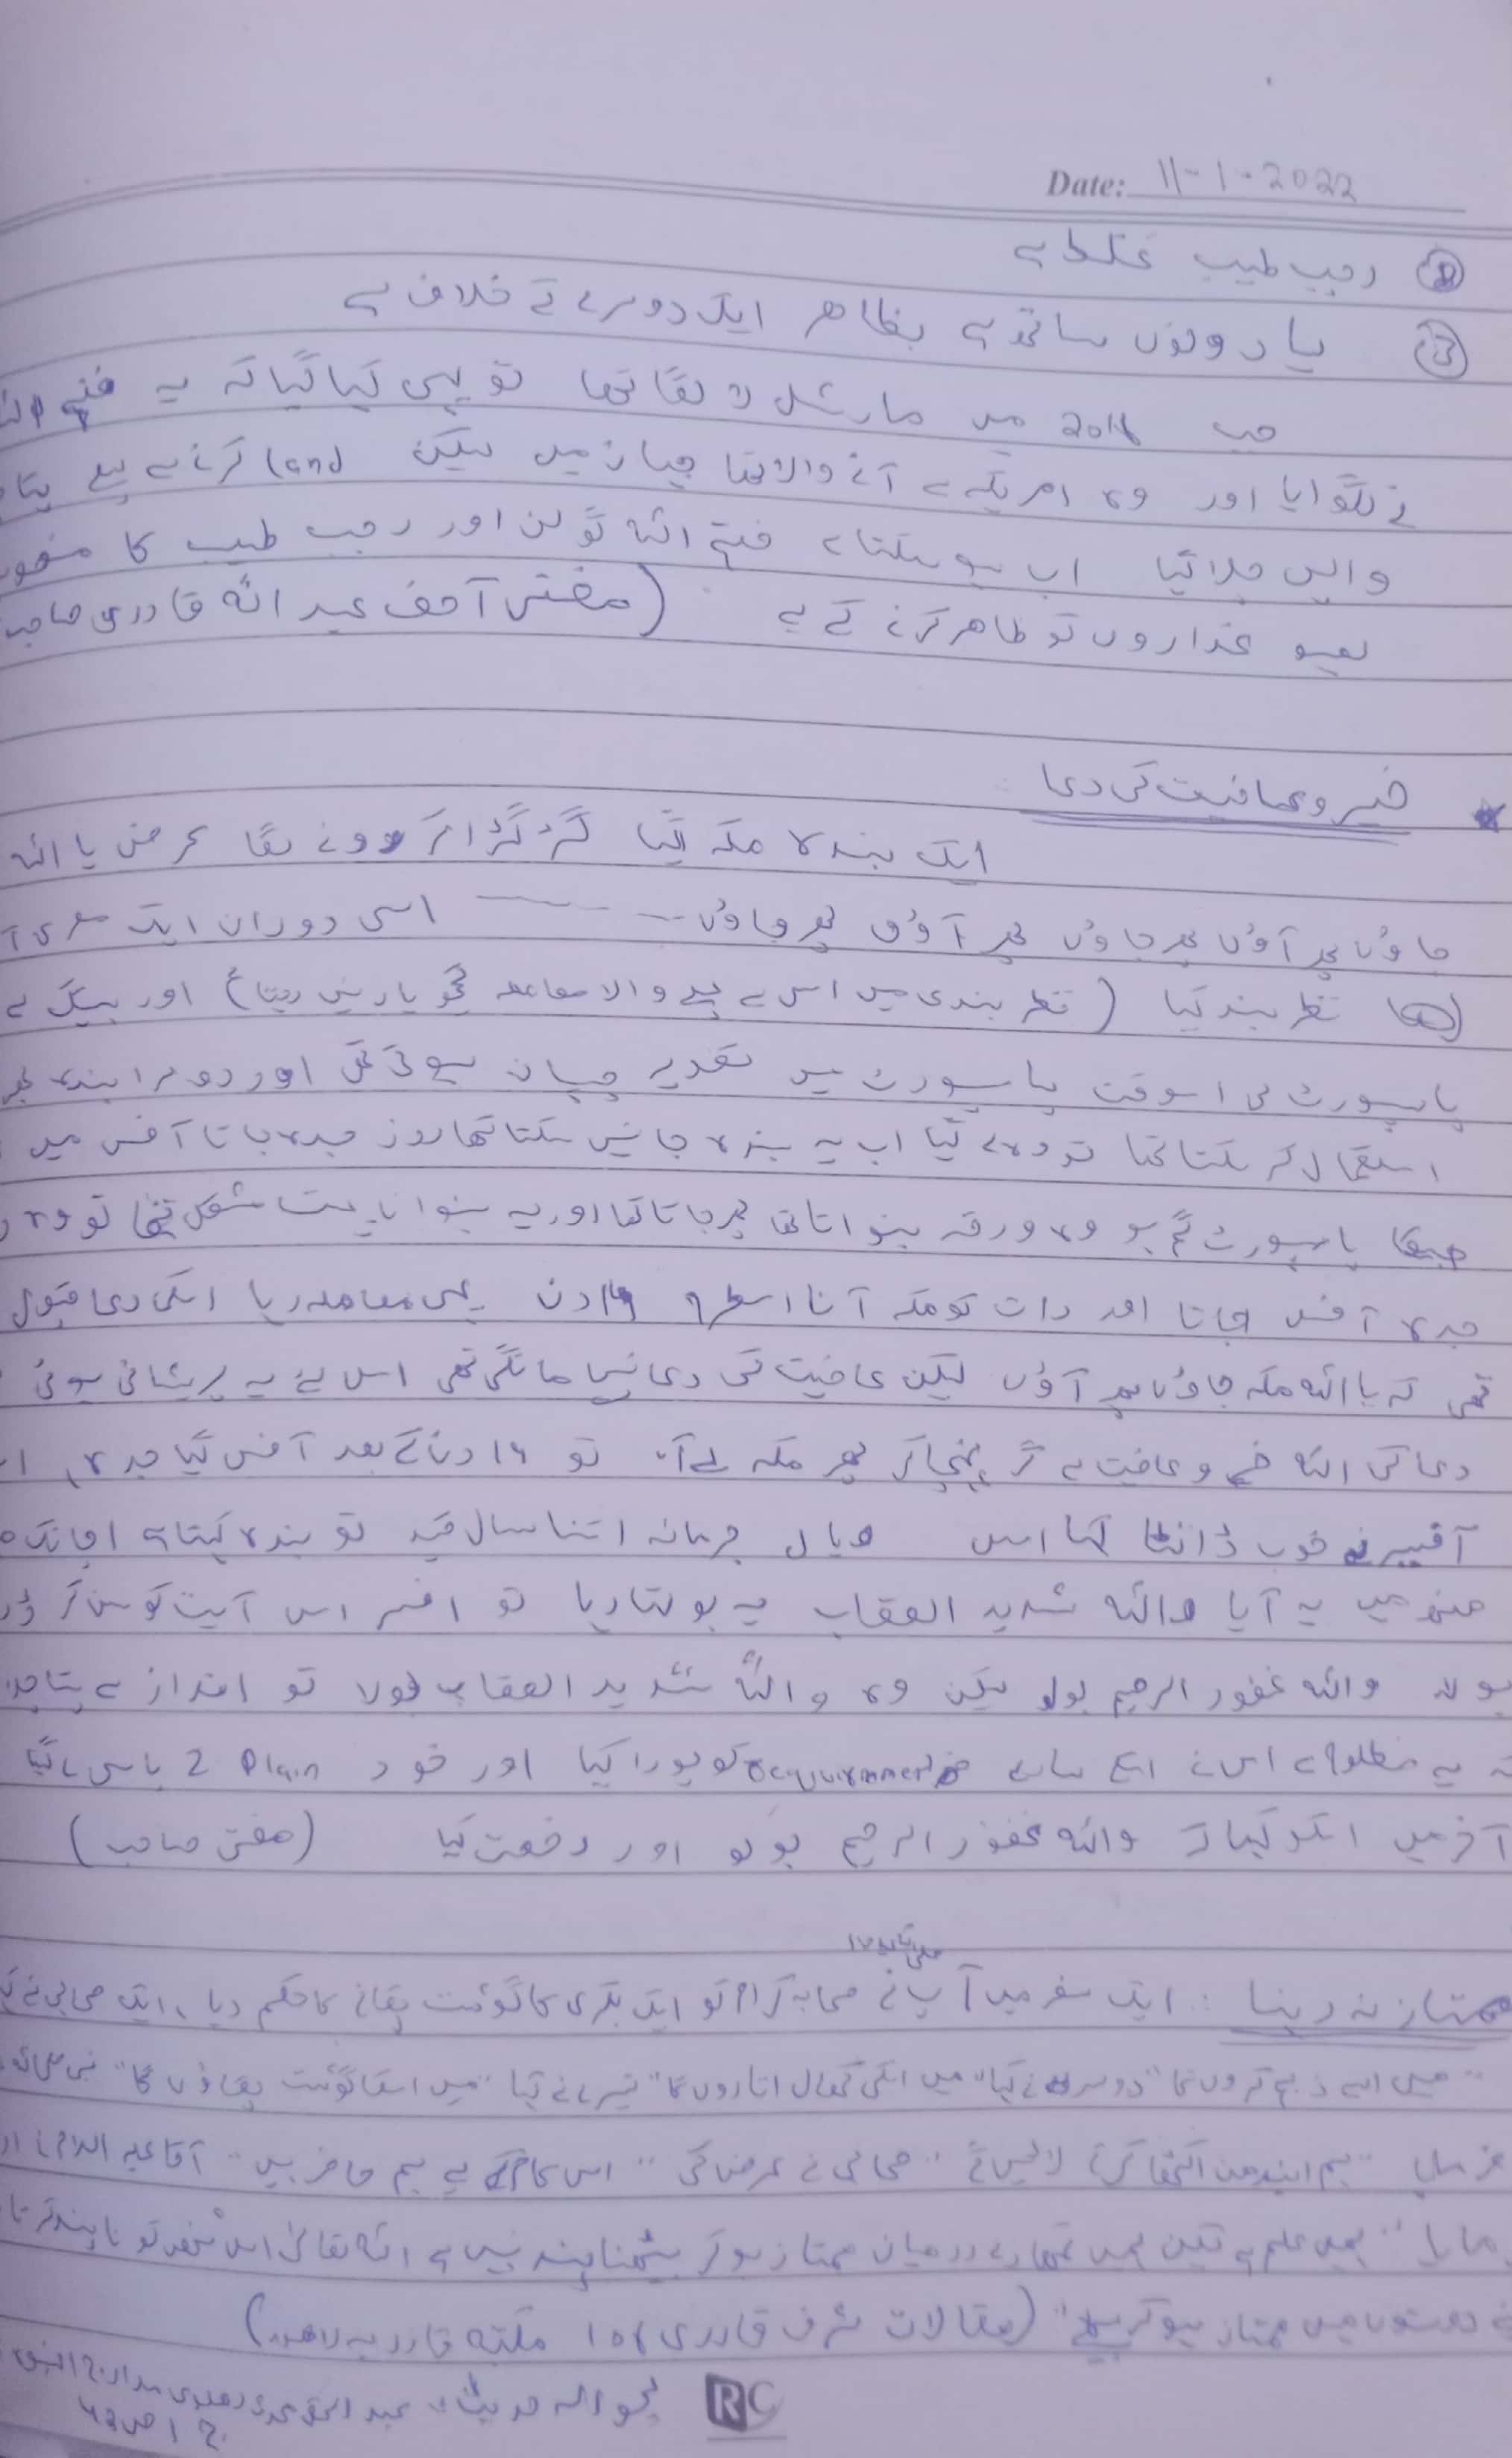 Date: 11-1-2022
② رجب طیب غلط ہے
③ یا دونوں ساتھ ہے بظاہر ایک دوسرے کے خلاف ہے
جب 2016 میں مارشل لا لگا تھا تو یہی کہا گیا کہ یہ فتح اللہ
نے لگوایا اور وہ امریکہ سے آنے والا تھا جہاز میں لیکن land کرنے سے پہلے پتا
واپس چلا گیا اب ہو سکتا ہے فتح اللہ گولن اور رجب طیب کا
غداروں کو ظاہر کرنے کے لیے (مفتی آصف عبد اللہ قادری صاحب
خیر و عافیت کی دعا
ایک بندہ مکہ گیا گڑگڑا کر رونے لگا عرض یا اللہ
جاوٗں پھر آوٗں پھر جاوٗں پھر آوٗں پھر جاوٗں ۔۔۔ اسی دوران ایک مصری آ
نظر بند کیا (نظر بندی میں اس سے پہلے والا معاملہ کچھ یاد نہیں رہتا) اور بیگ سے
پاسپورٹ لی اسوقت پاسپورٹ میں تصویر چسپاں ہوتی تھی اور دوسرا بندہ بھی
استعمال کر سکتا تھا تو وہ لے گیا اب یہ بندہ جا نہیں سکتا تھا روز جدہ جاتا آفس میں
جسکا پاسپورٹ گم ہو وہ ورقہ بنواتا تھا پھر جاتا تھا اور یہ بنوانا بہت مشکل تھا تو وہ
جدہ آفس جاتا اور رات کو مکہ آتا اسطرح 16 دن یہی معاملہ رہا اسکی دعا قبول
تھی کہ یا اللہ مکہ جاوٗں پھر آوٗں لیکن عافیت کی دعا نہیں مانگی تھی اس لئے یہ پریشانی ہوئی
دعا کی اللہ خیر و عافیت سے گھر پہنچا کر پھر مکہ لے آ۔ تو ١٦ دن کے بعد آفس گیا جدہ،
آفیسر نے خوب ڈانٹا کہا اس ریال جرمانہ اتنا سال قید تو بندہ کہتا ہے اچانک
منہ میں یہ آیا واللہ شدید العقاب یہ بولتا رہا تو افسر اس آیت کو سن کر ڈر
بولا واللہ غفور الرحیم بولو لیکن وہ واللہ شدید العقاب بولا تو انداز سے پتا چلا
کہ یہ مظلوم ہے اس نے اسکے سارے Requirement کو پورا کیا اور خود Plain پاس لے گیا
آخر میں اسکو کہا کہ واللہ غفور الرحیم بولو اور رخصت کیا (مفتی صاحب)
ممتاز نہ رہنا : ایک سفر میں آپ نے صحابہ کرام کو ایک بکری کا گوشت پکانے کا حکم دیا، ایک صحابی نے کہا
"میں اسے ذبح کروں گا" دوسرے نے کہا "میں اسکی کھال اتاروں گا" تیسرے نے کہا "میں اسکا گوشت پکاوٗں گا"
فرمایا "ہم ایندھن اکٹھا کر کے لائیں گے" صحابی نے عرض کی "اس کام کے لیے ہم حاضر ہیں" آقا علیہ السلام نے
فرمایا "ہمیں علم ہے لیکن ہمیں تمھارے درمیان ممتاز ہو کر بیٹھنا پسند نہیں ہے اللہ تعالیٰ اس شخص کو ناپسند کرتا
دوستوں میں ممتاز ہو کر بیٹھے" (مقالات شرف قادری ١٥٦ مکتبہ قادریہ لاہور)
بحوالہ حدیث: عبد الحق محدث دھلوی مدارج النبوہ
ج ١ ص
RC